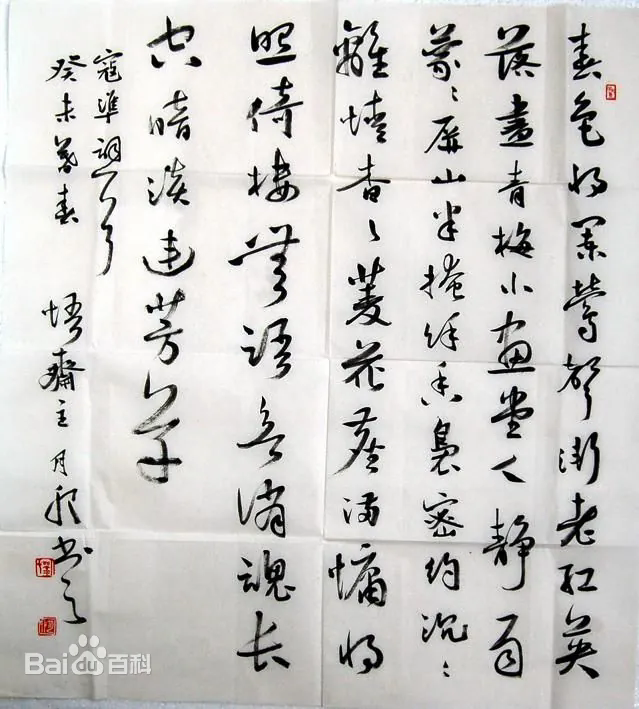 春色将阑莺声渐老红英
落盡青梅小画堂人静雨
蒙〻屏山半掩余香袅密约沉〻
離情杳〻菱花塵满慵将
照倚楼無语欲消魂长
空暗淡連芳草
寇準詞
癸未暮春 悟齋主月秋书之
Bai du 百科